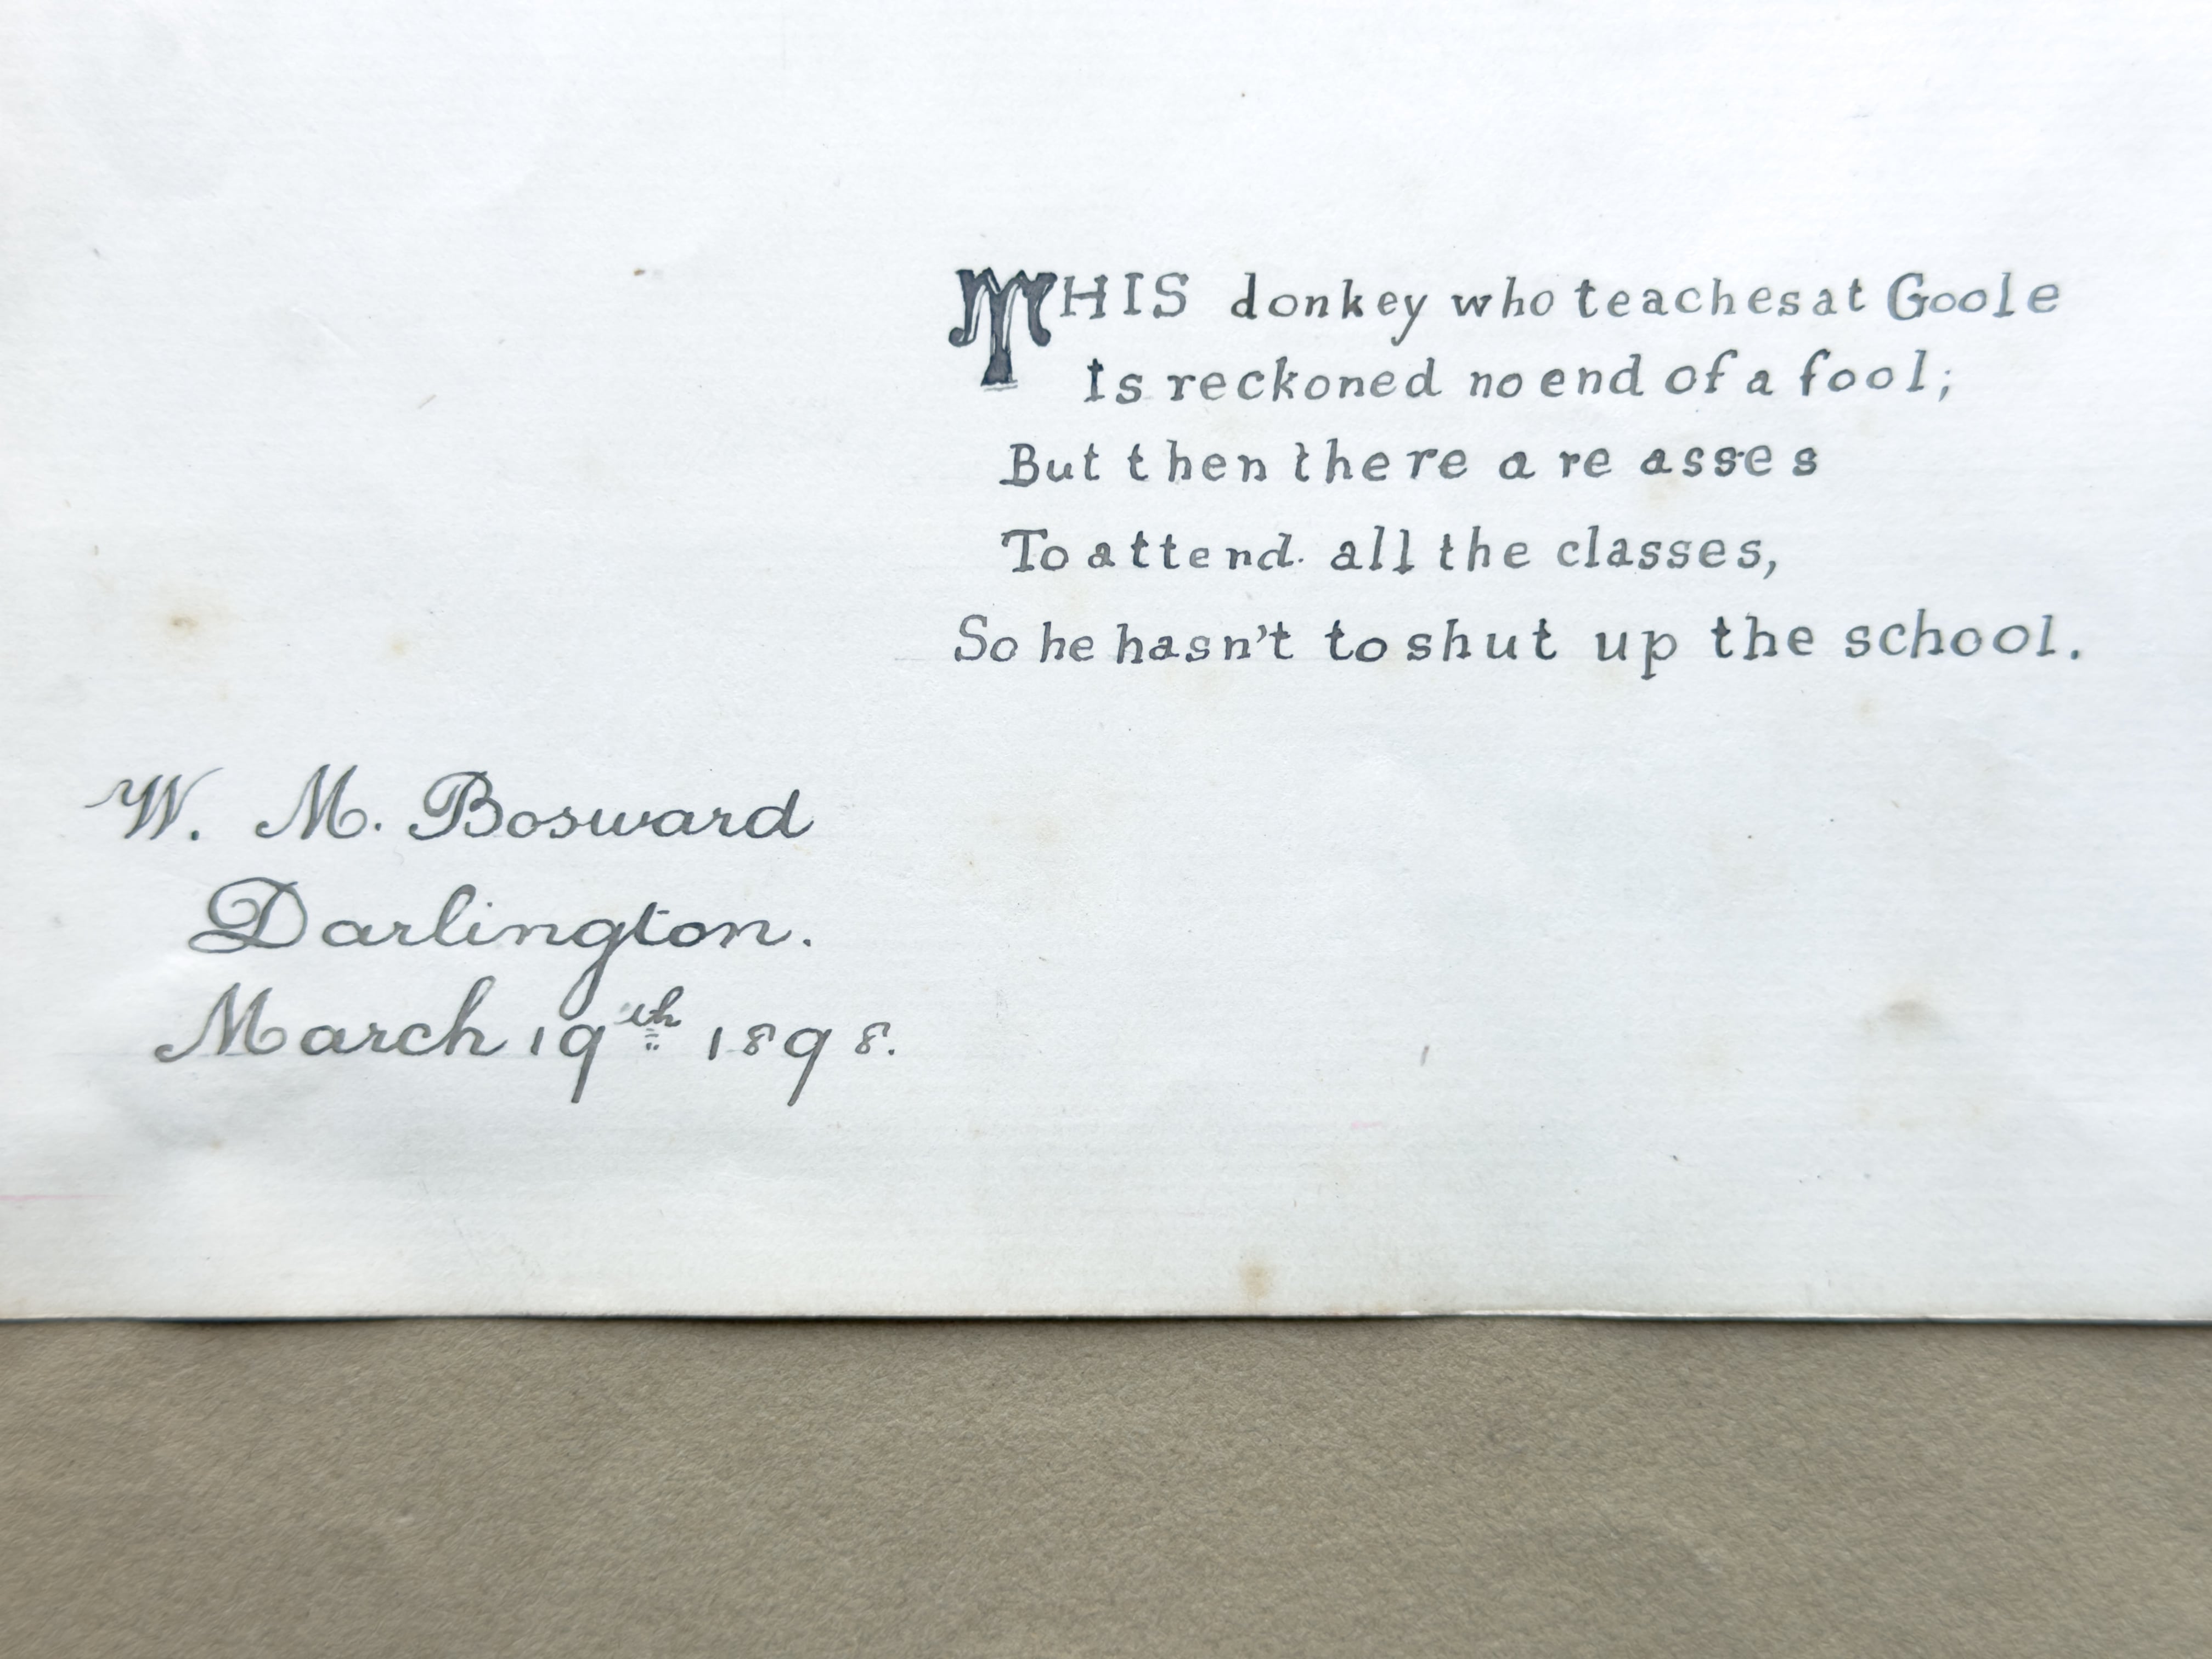 THIS donkey who teaches at Goole
Is reckoned no end of a fool;
But then there are asses
To attend all the classes,
So he hasn't to shut up the school.
W. M. Bosward
Darlington.
March 19th 1898.